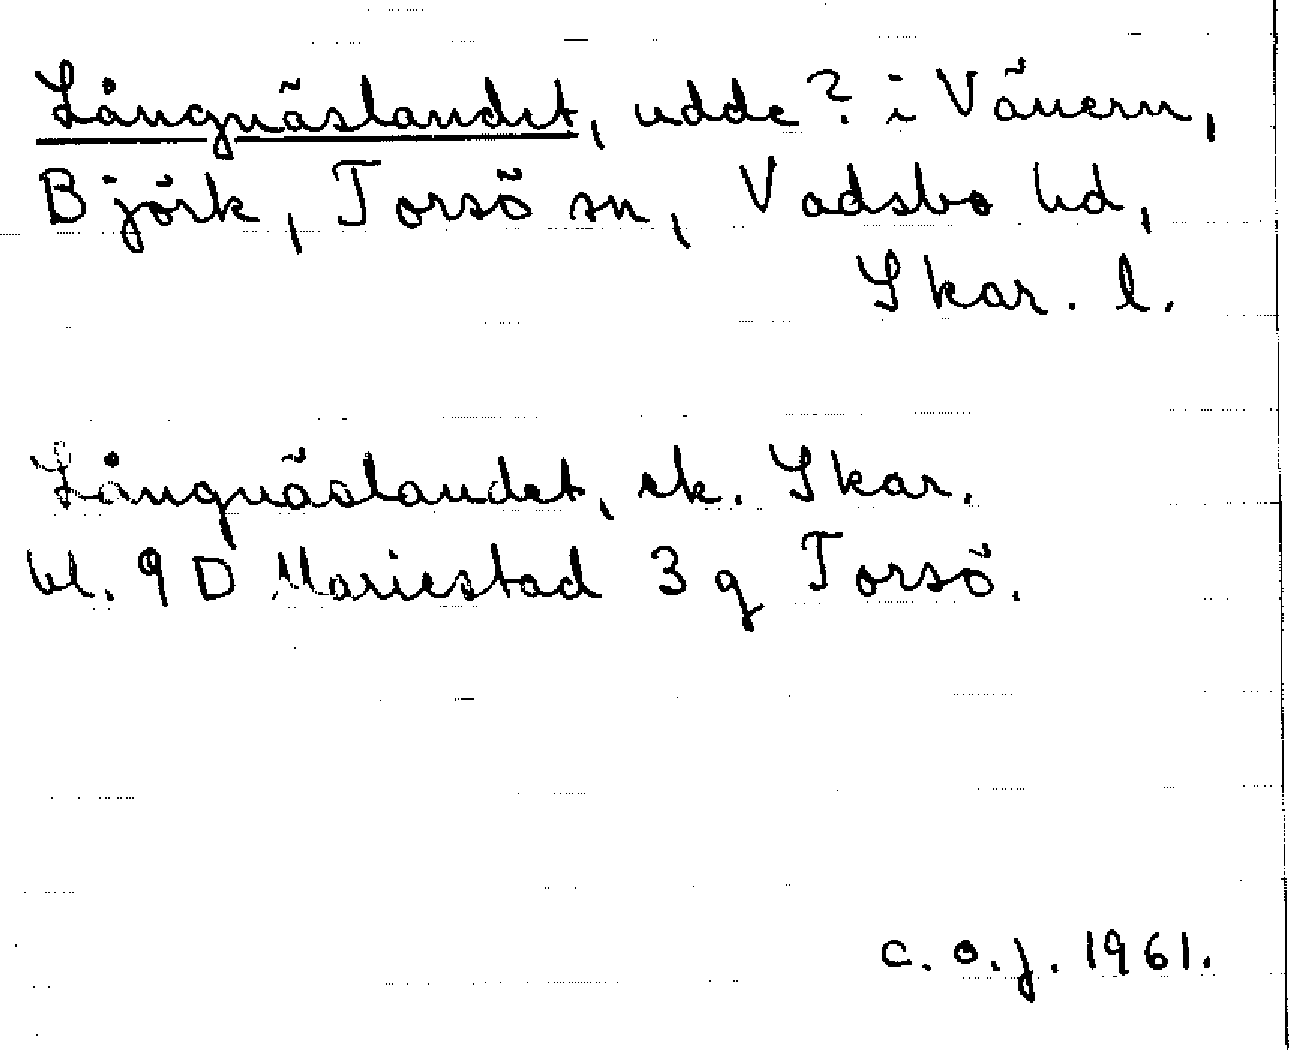 Långnäslandet, udde? i Vänern,
Björk, Torsö sn, Vadsbo hd,
Skar. l.
Långnäslandet, ek. Skar.
bl. 9 D Mariestad 3 g Torsö.
c. o. j. 1961.